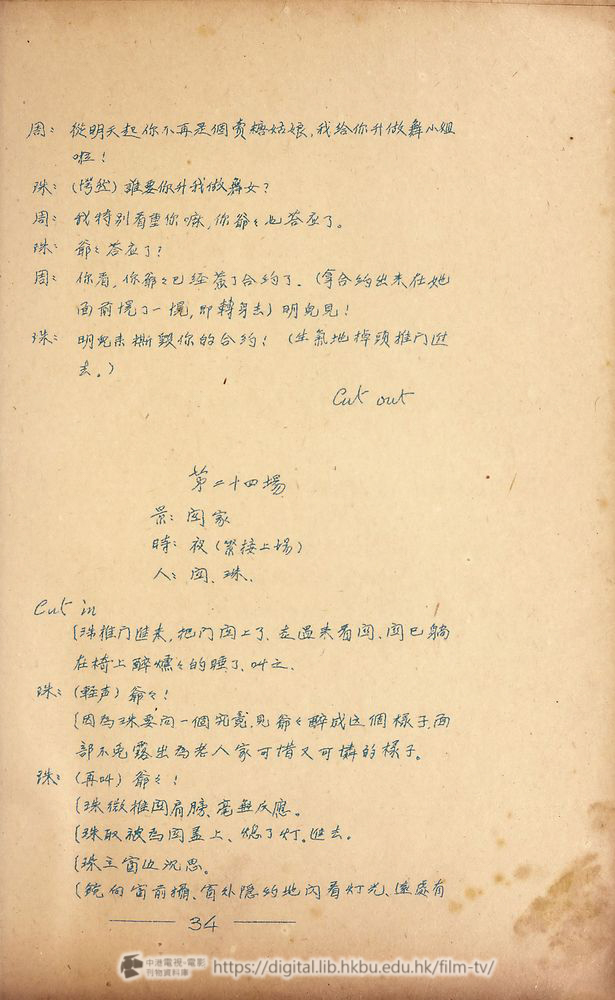 周：從明天起你不再是個賣糖姑娘，我給你升做舞小姐
啦！
珠：（愕然）誰要你升我做舞女？
周：我特別看重你嘛，你爺々也答应了。
珠：爺々答应了？
周：你看，你爺々已經簽了合約了．（拿合約出来在她
面前愰了一愰，即轉身去）明兒見！
珠：明兒来撕毀你的合約！（生氣地掉頭推门進
去。）
Cut out
第二十四場
景：囡家
時：夜（緊接上場）
人：囡、珠、
Cut in
〔珠推门進来，把门囡上了、走過来看囡、囡已躺
在椅上醉燻々的睡了、叫之、
珠：（輕声）爺々！
〔因為珠要问一個究竟，見爺々醉成这個樣子，面
部不免露出為老人家可惜又可憐的樣子。
珠：（再叫）爺々！
〔珠微推囡肩膀、毫無反應。
〔珠取被為囡盖上、熄了灯。進去。
〔珠立窗边沉思。
〔鏡向窗前攝、窗外隐約地闪着灯光、遠處有
34
中港電視-電影
刊物資料庫
https://digital.lib.hkbu.edu.hk/film-tv/